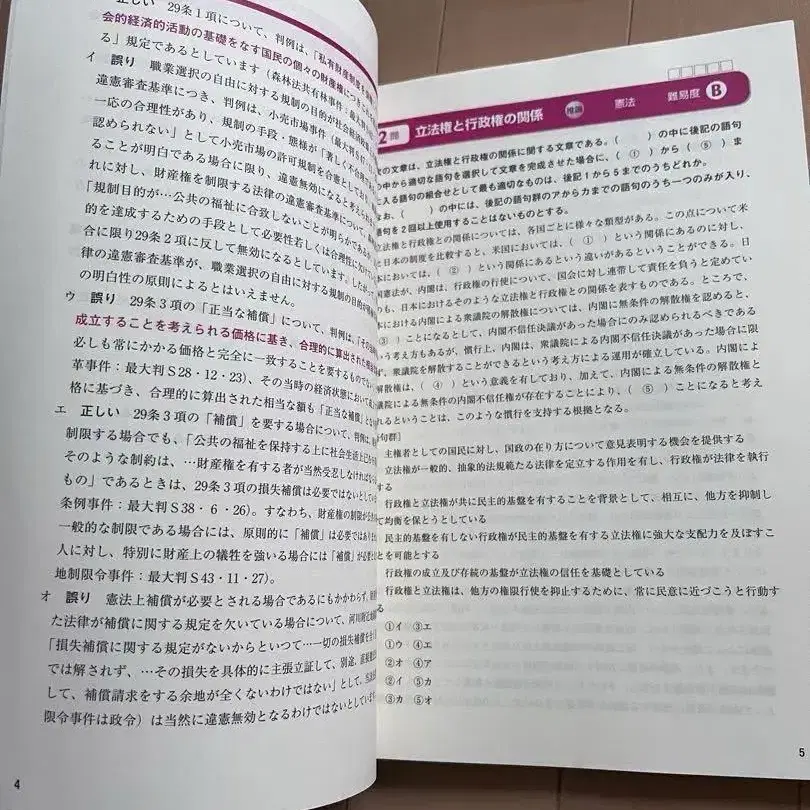 正しい 29条1項について、判例は、「私有財産制度を
会的経済的活動の基礎をなす国民の個々の財産権につき
る」規定であるとしています（森林法共有林事件：最大判
イ 誤り 職業選択の自由に対する規制の目的が社会経済
違憲審査基準につき、判例は、小売市場事件（最大判S
一応の合理性があり、規制の手段・態様が「著しく不合理であ
認められない」として小売市場の許可規制を合憲として
ることが明白である場合に限り、違憲無効になると考え
れに対し、財産権を制限する法律の違憲審査基準について、
「規制目的が…公共の福祉に合致しないことが明らかである
的を達成するための手段として必要性若しくは合理性に欠けて
合に限り29条2項に反して無効になるとしています。
律の違憲審査基準が、職業選択の自由に対する規制の目的が
の明白性の原則によるとはいえません。
ウ 誤り 29条3項の「正当な補償」について、判例は、「その
成立することを考えられる価格に基き、合理的に算出された
必しも常にかかる価格と完全に一致することを要するもので
革事件：最大判S28・12・23）、その当時の経済状態において
格に基づき、合理的に算出された相当な額も「正当な補償」に
エ 正しい 29条3項の「補償」を要する場合について、判例は、
制限する場合でも、「公共の福祉を保持する上に社会生活上已むを
そのような制約は、…財産権を有する者が当然受忍しなければな
もの」であるときは、29条3項の損失補償は必要ではないとし
条例事件：最大判S38・6・26）。すなわち、財産権の制限が
一般的な制限である場合には、原則的に「補償」は必要ではあり
人に対し、特別に財産上の犠牲を強いる場合には「補償」が必要
地制限令事件：最大判S43・11・27）。
オ 誤り 憲法上補償が必要とされる場合であるにもかかわらず、
た法律が補償に関する規定を欠いている場合について、河川附近
「損失補償に関する規定がないからといつて…一切の損失補償を
では解されず、…その損失を具体的に主張立証して、別途、直接
して、補償請求をする余地が全くないわけではない」として、
限令事件は政令）は当然に違憲無効となるわけではないとしていま
4
2問 立法権と行政権の関係 推論 憲法 難易度 B
の文章は、立法権と行政権の関係に関する文章である。（ ）の中に後記の語句
の中から適切な語句を選択して文章を完成させた場合に、（ ① ）から（ ⑤ ）ま
に入る語句の組合せとして最も適切なものは、後記1から5までのうちどれか。
お、（ ）の中には、後記の語句群のアからカまでの語句のうち一つのみが入り、
語句を2回以上使用することはないものとする。
立法権と行政権との関係については、各国ごとに様々な類型がある。この点について米
と日本の制度を比較すると、米国においては、（ ① ）という関係にあるのに対し、
本においては、（ ② ）という関係にあるという違いがあるということができる。日
国憲法が、内閣は、行政権の行使について、国会に対し連帯して責任を負うと定めてい
のも、日本におけるそのような立法権と行政権との関係を表すものである。ところで、
本における内閣による衆議院の解散権については、内閣に無条件の解散権を認めると、
③ ）ことになるとして、内閣不信任決議があった場合にのみ認められるべきである
う考え方もあるが、慣行上、内閣は、衆議院による内閣不信任決議があった場合に限
ず、衆議院を解散することができるという考え方による運用が確立している。内閣によ
解散権は、（ ④ ）という意義を有しており、加えて、内閣による無条件の解散権と
議院による無条件の内閣不信任権が存在することにより、（ ⑤ ）ことになると考え
れるということは、このような慣行を支持する根拠となる。
句群］
主権者としての国民に対し、国政の在り方について意見表明する機会を提供する
立法権が一般的、抽象的法規範たる法律を定立する作用を有し、行政権が法律を執行
する
行政権と立法権が共に民主的基盤を有することを背景として、相互に、他方を抑制し
て均衡を保とうとしている
民主的基盤を有しない行政権が民主的基盤を有する立法権に強大な支配力を及ぼすこ
とを可能とする
行政権の成立及び存続の基盤が立法権の信任を基礎としている
行政権と立法権は、他方の権限行使を抑止するために、常に民意に近づこうと行動す
る
①イ ③エ
①ウ ④エ
②オ ④ア
②イ ⑤カ
③カ ⑤オ
5